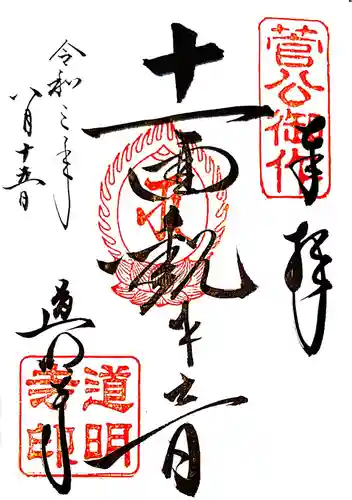 奉拝
菅公御作
十一面観世音
令和三年
八月十五日
道明寺
道明
寺印